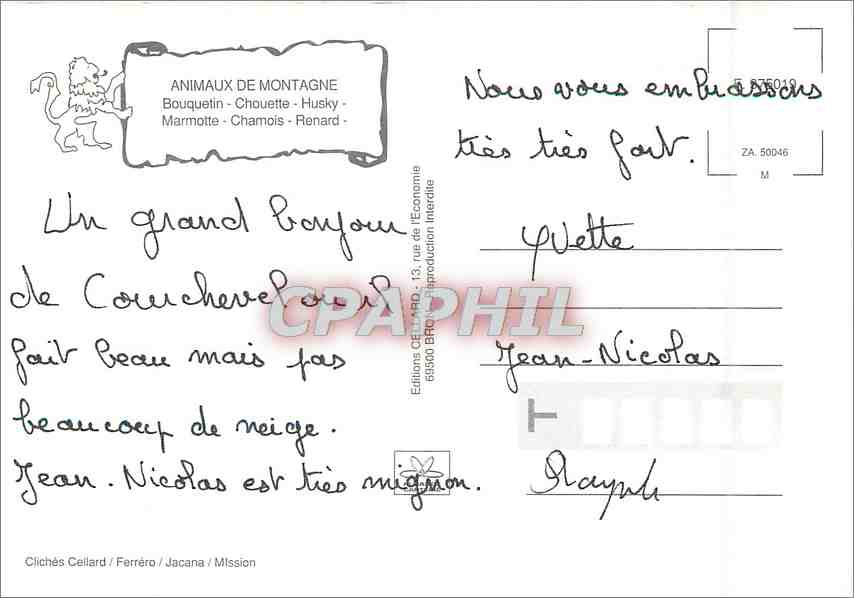 ANIMAUX DE MONTAGNE
Bouquetin - Chouette - Husky -
Marmotte - Chamois - Renard -
Un grand bonjour
de Courchevel où il
fait beau mais pas
beaucoup de neige.
Jean-Nicolas est très mignon.
Nous vous embrassons
très très fort.
Yvette
Jean-Nicolas
ZA. 50046
M
Editions CELLARD - 13, rue de l'Economie
69500 BRON - Reproduction Interdite
CPAPHIL
Clichés Cellard / Ferréro / Jacana / MIssion